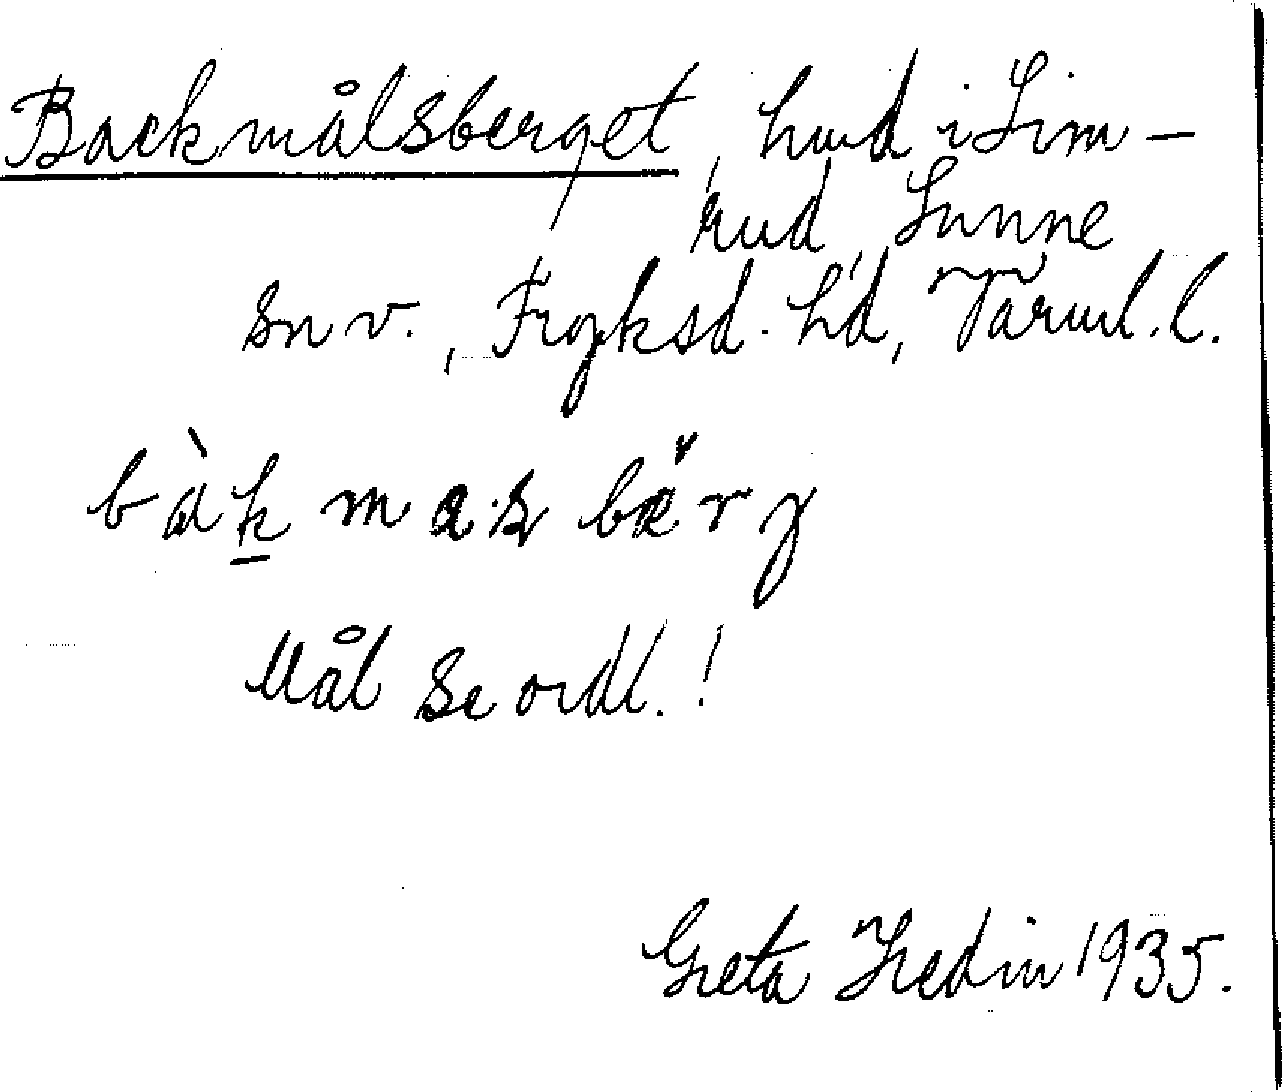 Backmålsberget, hmd i Lim-
rud, Sunne
sn v., Fryksd. hd, Värml. l.
bàk mas bärg
Mål se ordl.!
Greta Hedin 1935.